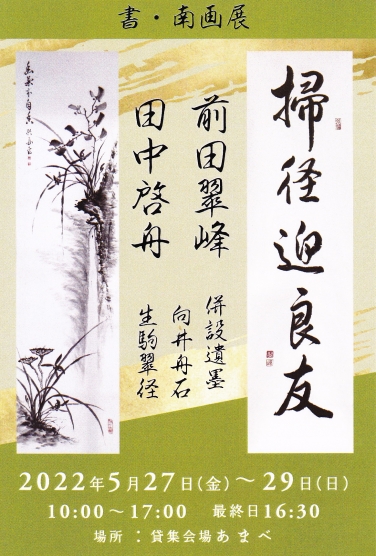 書・南画展
掃径迎良友
前田翠峰
田中啓舟
併設遺墨
向井舟石
生駒翠径
2022年5月27日(金)～29日(日)
10:00～17:00 最終日16:30
場所：貸集会場あまべ